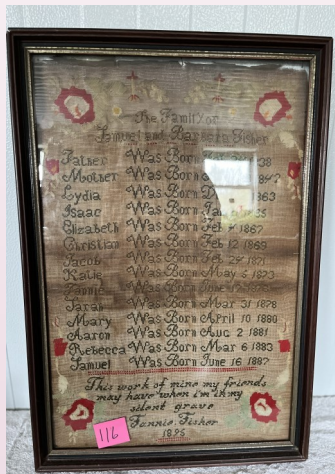 The Family of
Samuel and Barbara Fisher
Father Was Born 38
Mother Was Born
Lydia Was Born 1863
Isaac Was Born
Elizabeth Was Born Feb 4 1867
Christian Was Born Feb 12 1869
Jacob Was Born Feb 24 1871
Katie Was Born May 5 1873
Fannie Was Born June
Sarah Was Born Mar 31 1878
Mary Was Born April 10 1880
Aaron Was Born Aug 2 1881
Rebecca Was Born Mar 6 1883
Samuel Was Born June 16 1887
This work of mine my friends
may have when i'm in my
silent grave
Fannie Fisher
1895
116